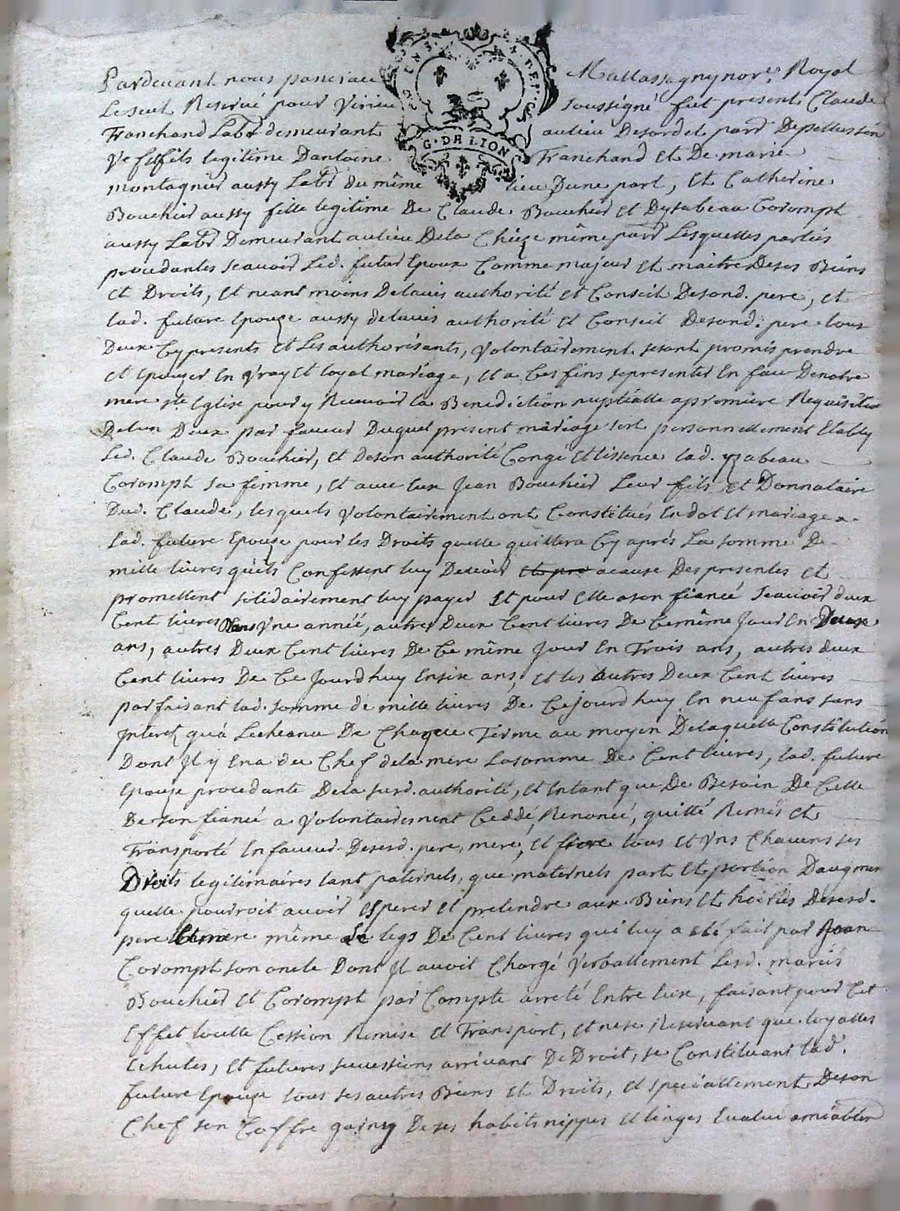 Pardevant nous pancrace Mallassagny nore. Royal
Le seul Reservé pour Virieu soussigné fut present Claude
Franchand Labr. demeurant au lieu Desordet parr. Depellussin
Ve fs fils legitime Dantoine Franchand et De marie
montagnier aussy Labr. du même lieu Dune part, Et Catherine
Bouchier aussy fille legitime De Claude Bouchier et Dysabeau Corompt
aussy Labr. Demeurant au lieu Dela Chieze même parr. Lesquelles parties
procedantes scavoir Led. futur Epoux Comme majeur et maitre Deses Biens
Et Droits, Et neant moins Delavis authorité et Conseil Desond. pere, et
lad. future Epouze aussy delavis authorité et Conseil Desond. pere tous
Deux Cy presents et Les authorisants, volontairement sesont promis prendre
et Epouzer En vray et loyal mariage, Et a Ces fins sepresenter En face Denotre
mere ste Eglise pour y Recevoir la Benediction nuptialle a premiere Requisition
Delun Deux par faveur Duquel present mariage sest personnellement Etably
Led. Claude Bouchier, et Deson authorité Congé et lissence lad. yzabeau
Corompt sa femme, et avec eux Jean Bouchier Leur fils et Donnataire
Dud. Claude, lesquels volontairement ont Constitués En dot et mariage a
Lad. future Epouze pour les Droits quelle quittera Cy après La somme De
mille livres quils Confessent luy Devoir acause Des presentes et
promettent solidairement luy payer Et pour elle a son fiancé Scavoir deux
Cent livres Dans Une année, autres Deux Cent livres De Cemême Jour En Deux
ans, autres Deux Cent livres De Ce même Jour En Trois ans, autres deux
Cent livres De Ce Jourdhuy En six ans, Et les autres Deux Cent livres
parfaisant lad. somme de mille livres De Cejourdhuy En neuf ans sans
Interest qua Lecheance De Chaque Terme au moyen Delaquelle Constitution
Dont Il y En a du Chef dela mere Lasomme De Cent livres, lad. future
Epouze procedante Dela susd. authorité, et Entant que De Besoin De Celle
De son fiancé a volontairement Ceddé, Renoncé, quitté Remis et
Transporté En faveur Desesd. pere, mere, et frere tous et Uns Chacuns ses
Droits legitimaires tant paternels, que maternels part et portion Daugment
quelle pourroit avoir Esperer et pretendre aux Biens et hoiries Desesd.
pere Et mere même Le legs De Cent livres qui luy a été fait par Jean
Corompt son oncle Dont Il avoit Chargé verballement Lesd. mariés
Bouchier et Corompt par Compte arreté Entre Eux, faisant pour Cet
Effet toutte Cession Remise et Transport, et nese Reservant que loyalles
Echutes, Et futures successions arrivant De Droit, se Constituant lad.
future Epouze tous ses autres Biens et Droits, et speciallement Deson
Chef son Coffre garny De ses habits nippes et linges Evalué amiablem
G. DE LION